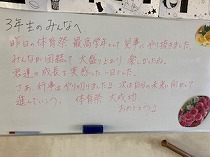 3年生のみんなへ
昨日の体育祭 最高学年として 見事にやり抜きました。
みんなが団結して 大盛り上がり 楽しかったね。
君達の成長を実感した一日でした。
さあ 行事はやり切りました! 次は自分の未来に向けて
進んでいこう。 体育祭 大成功
おめでとう♪